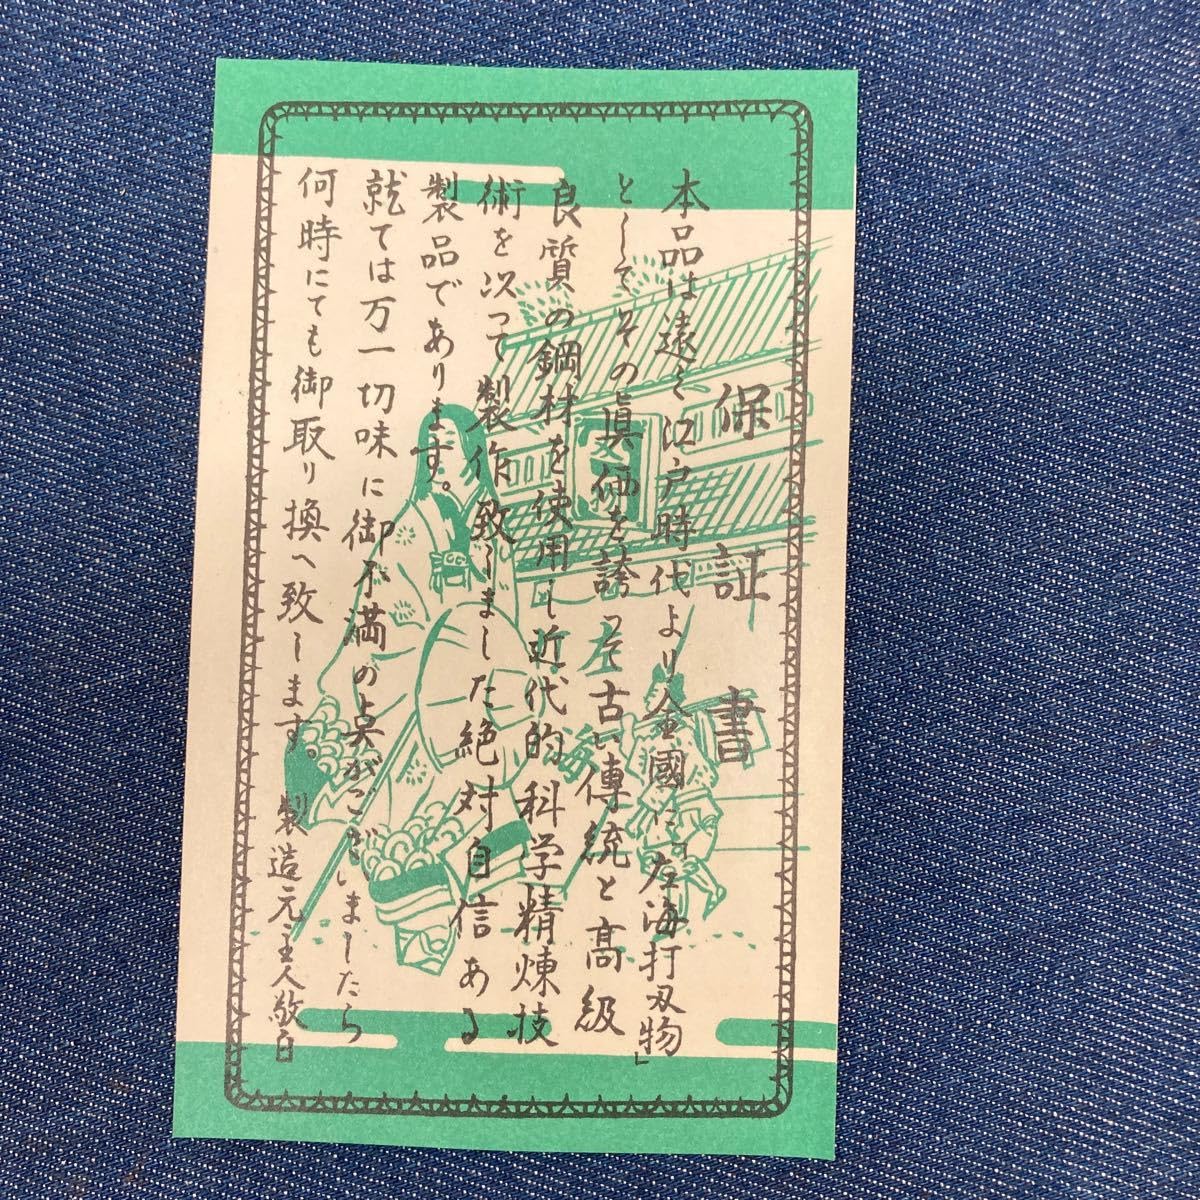 保証書
本品は遠く江戸時代より全國に「左海打刃物」
としてその眞価を誇って古い傳統と高級
良質の鋼材を使用し近代的科学精煉技
術を以って製作致しました絶対自信ある
製品であります。
就ては万一切味に御不満の点がございましたら
何時にても御取り換へ致します。
製造元主人敬白
左海